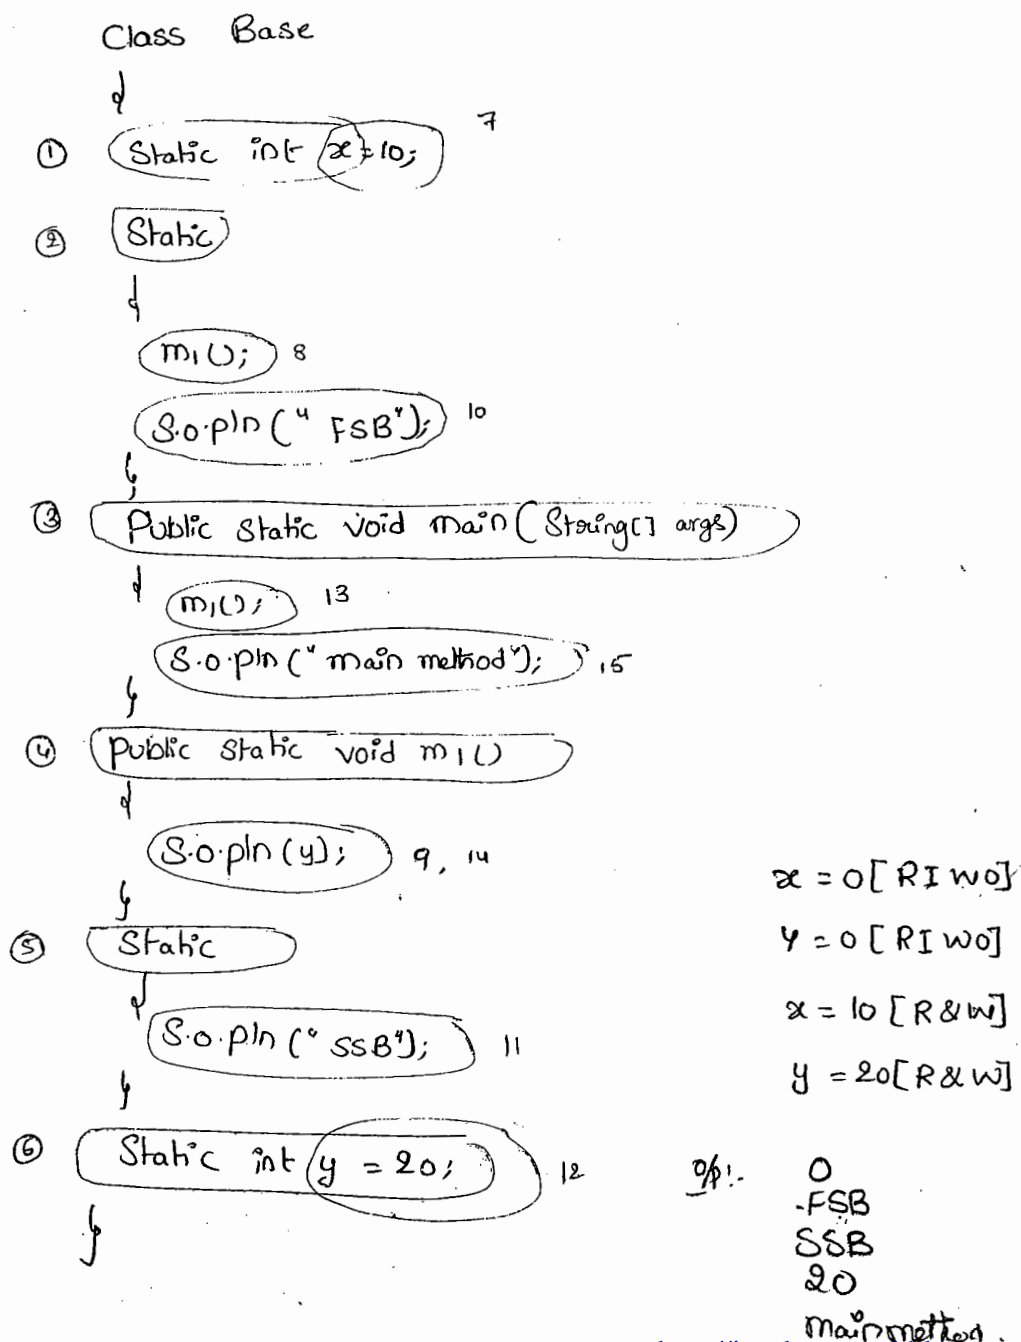 Class Base
{
① Static int x=10; 7
② Static
{
m1(); 8
S.o.pln(" FSB"); 10
}
③ Public static void main(String[] args)
{
m1(); 13
S.o.pln("main method"); 15
}
④ public static void m1()
{
S.o.pln(y); 9, 14
}
⑤ Static
{
S.o.pln("SSB"); 11
}
⑥ Static int y = 20; 12
}
x = 0[RIWO]
y = 0[RIWO]
x = 10[R&W]
y = 20[R&W]
o/p:- 0
FSB
SSB
20
main method.